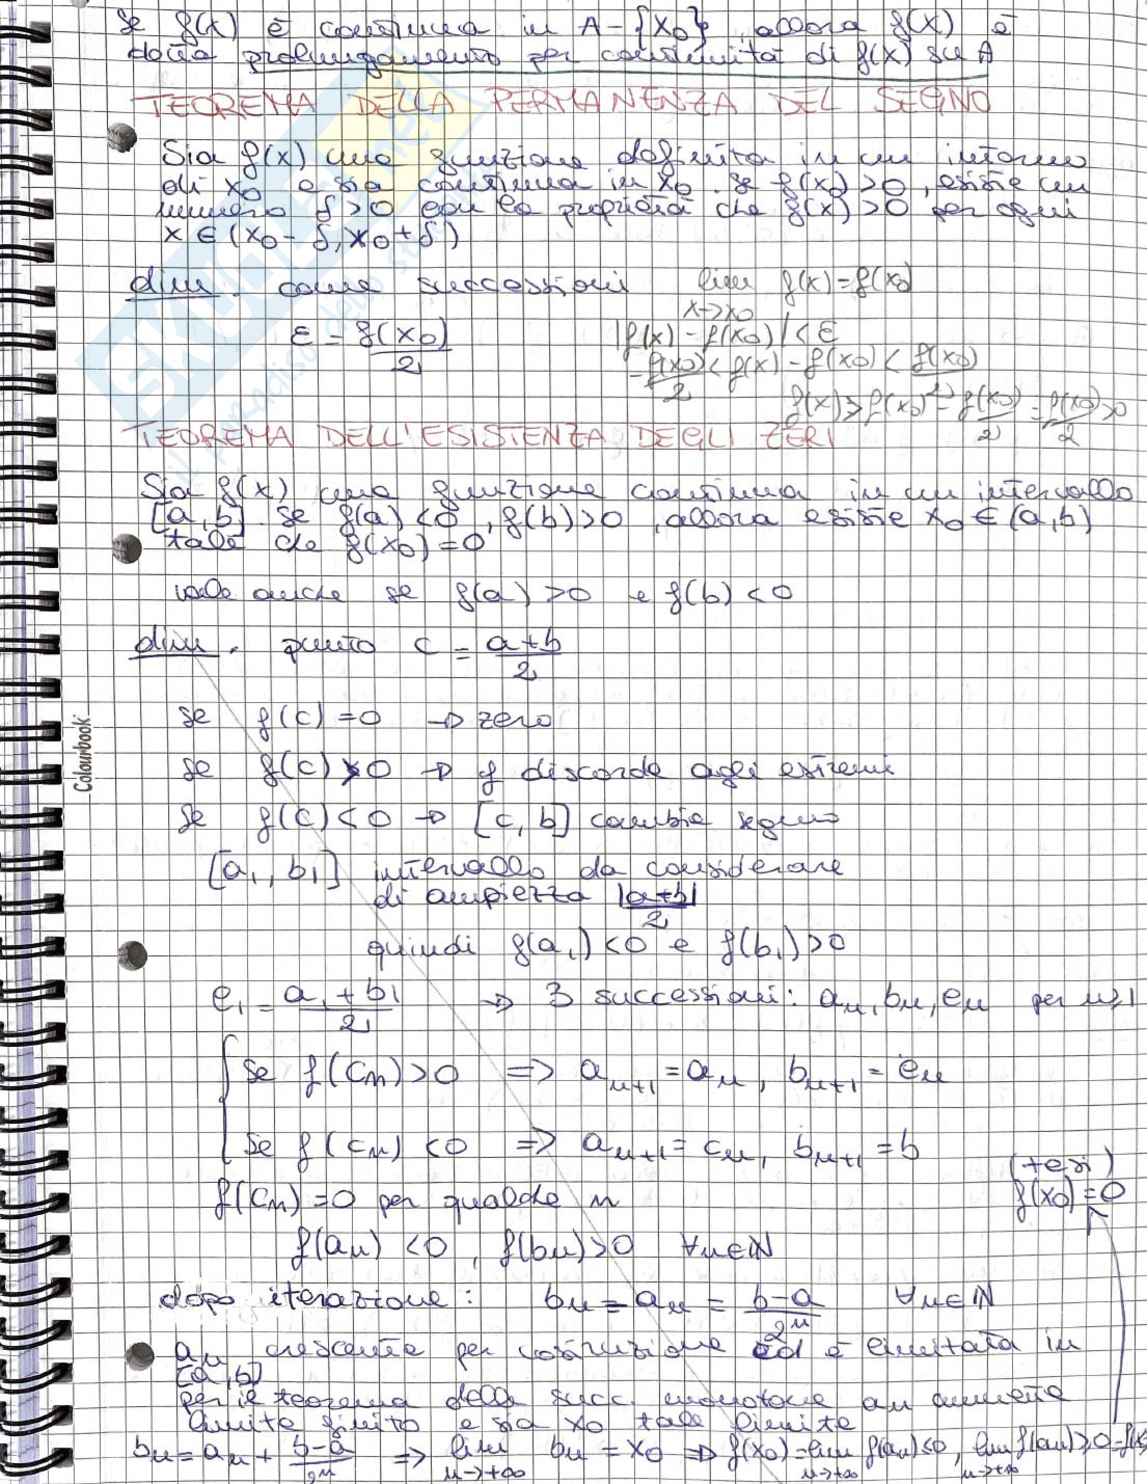 Se f(x) è continua in A-{x0}, allora f(x) è
detta prolungamento per continuità di f(x) su A
TEOREMA DELLA PERMANENZA DEL SEGNO
Sia f(x) una funzione definita in un intorno
di x0 e sia continua in x0. Se f(x0)>0, esiste un
numero δ>0 con la proprietà che f(x)>0 per ogni
x∈(x0-δ, x0+δ)
dim. come successioni lim f(x)=f(x0)
x→x0
ε = f(x0)/2 |f(x)-f(x0)|<ε
-f(x0)/2 < f(x)-f(x0) < f(x0)/2
f(x) > f(x0) - f(x0)/2 = f(x0)/2 > 0
TEOREMA DELL'ESISTENZA DEGLI ZERI
Sia f(x) una funzione continua in un intervallo
[a,b]. Se f(a)<0, f(b)>0, allora esiste x0∈(a,b)
tale che f(x0)=0
vale anche se f(a)>0 e f(b)<0
dim. punto c = a+b/2
se f(c)=0 → zero
se f(c)>0 → f discorde agli estremi
se f(c)<0 → [c,b] cambia segno
[a1, b1] intervallo da considerare
di ampiezza |a+b|/2
quindi f(a1)<0 e f(b1)>0
c1 = a1+b1/2 → 3 successioni: an, bn, cn per n≥1
se f(cn)>0 => an+1=an, bn+1=cn
se f(cn)<0 => an+1=cn, bn+1=b
(tesi)
f(cn)=0 per qualche n f(x0)=0
f(an)<0, f(bn)>0 ∀n∈N
dopo iterazione: bn-an = b-a/2^n ∀n∈N
an crescente per costruzione ed è limitata in
[a,b]
per il teorema delle succ. monotone an ammette
limite finito e sia x0 tale limite
bn=an+ b-a/2^n => lim n→+∞ bn=x0 → f(x0)=lim n→+∞ f(an)≤0, lim n→+∞ f(an)≥0=f(x0
Colourbook
SKUOLA.net
il paradiso dello